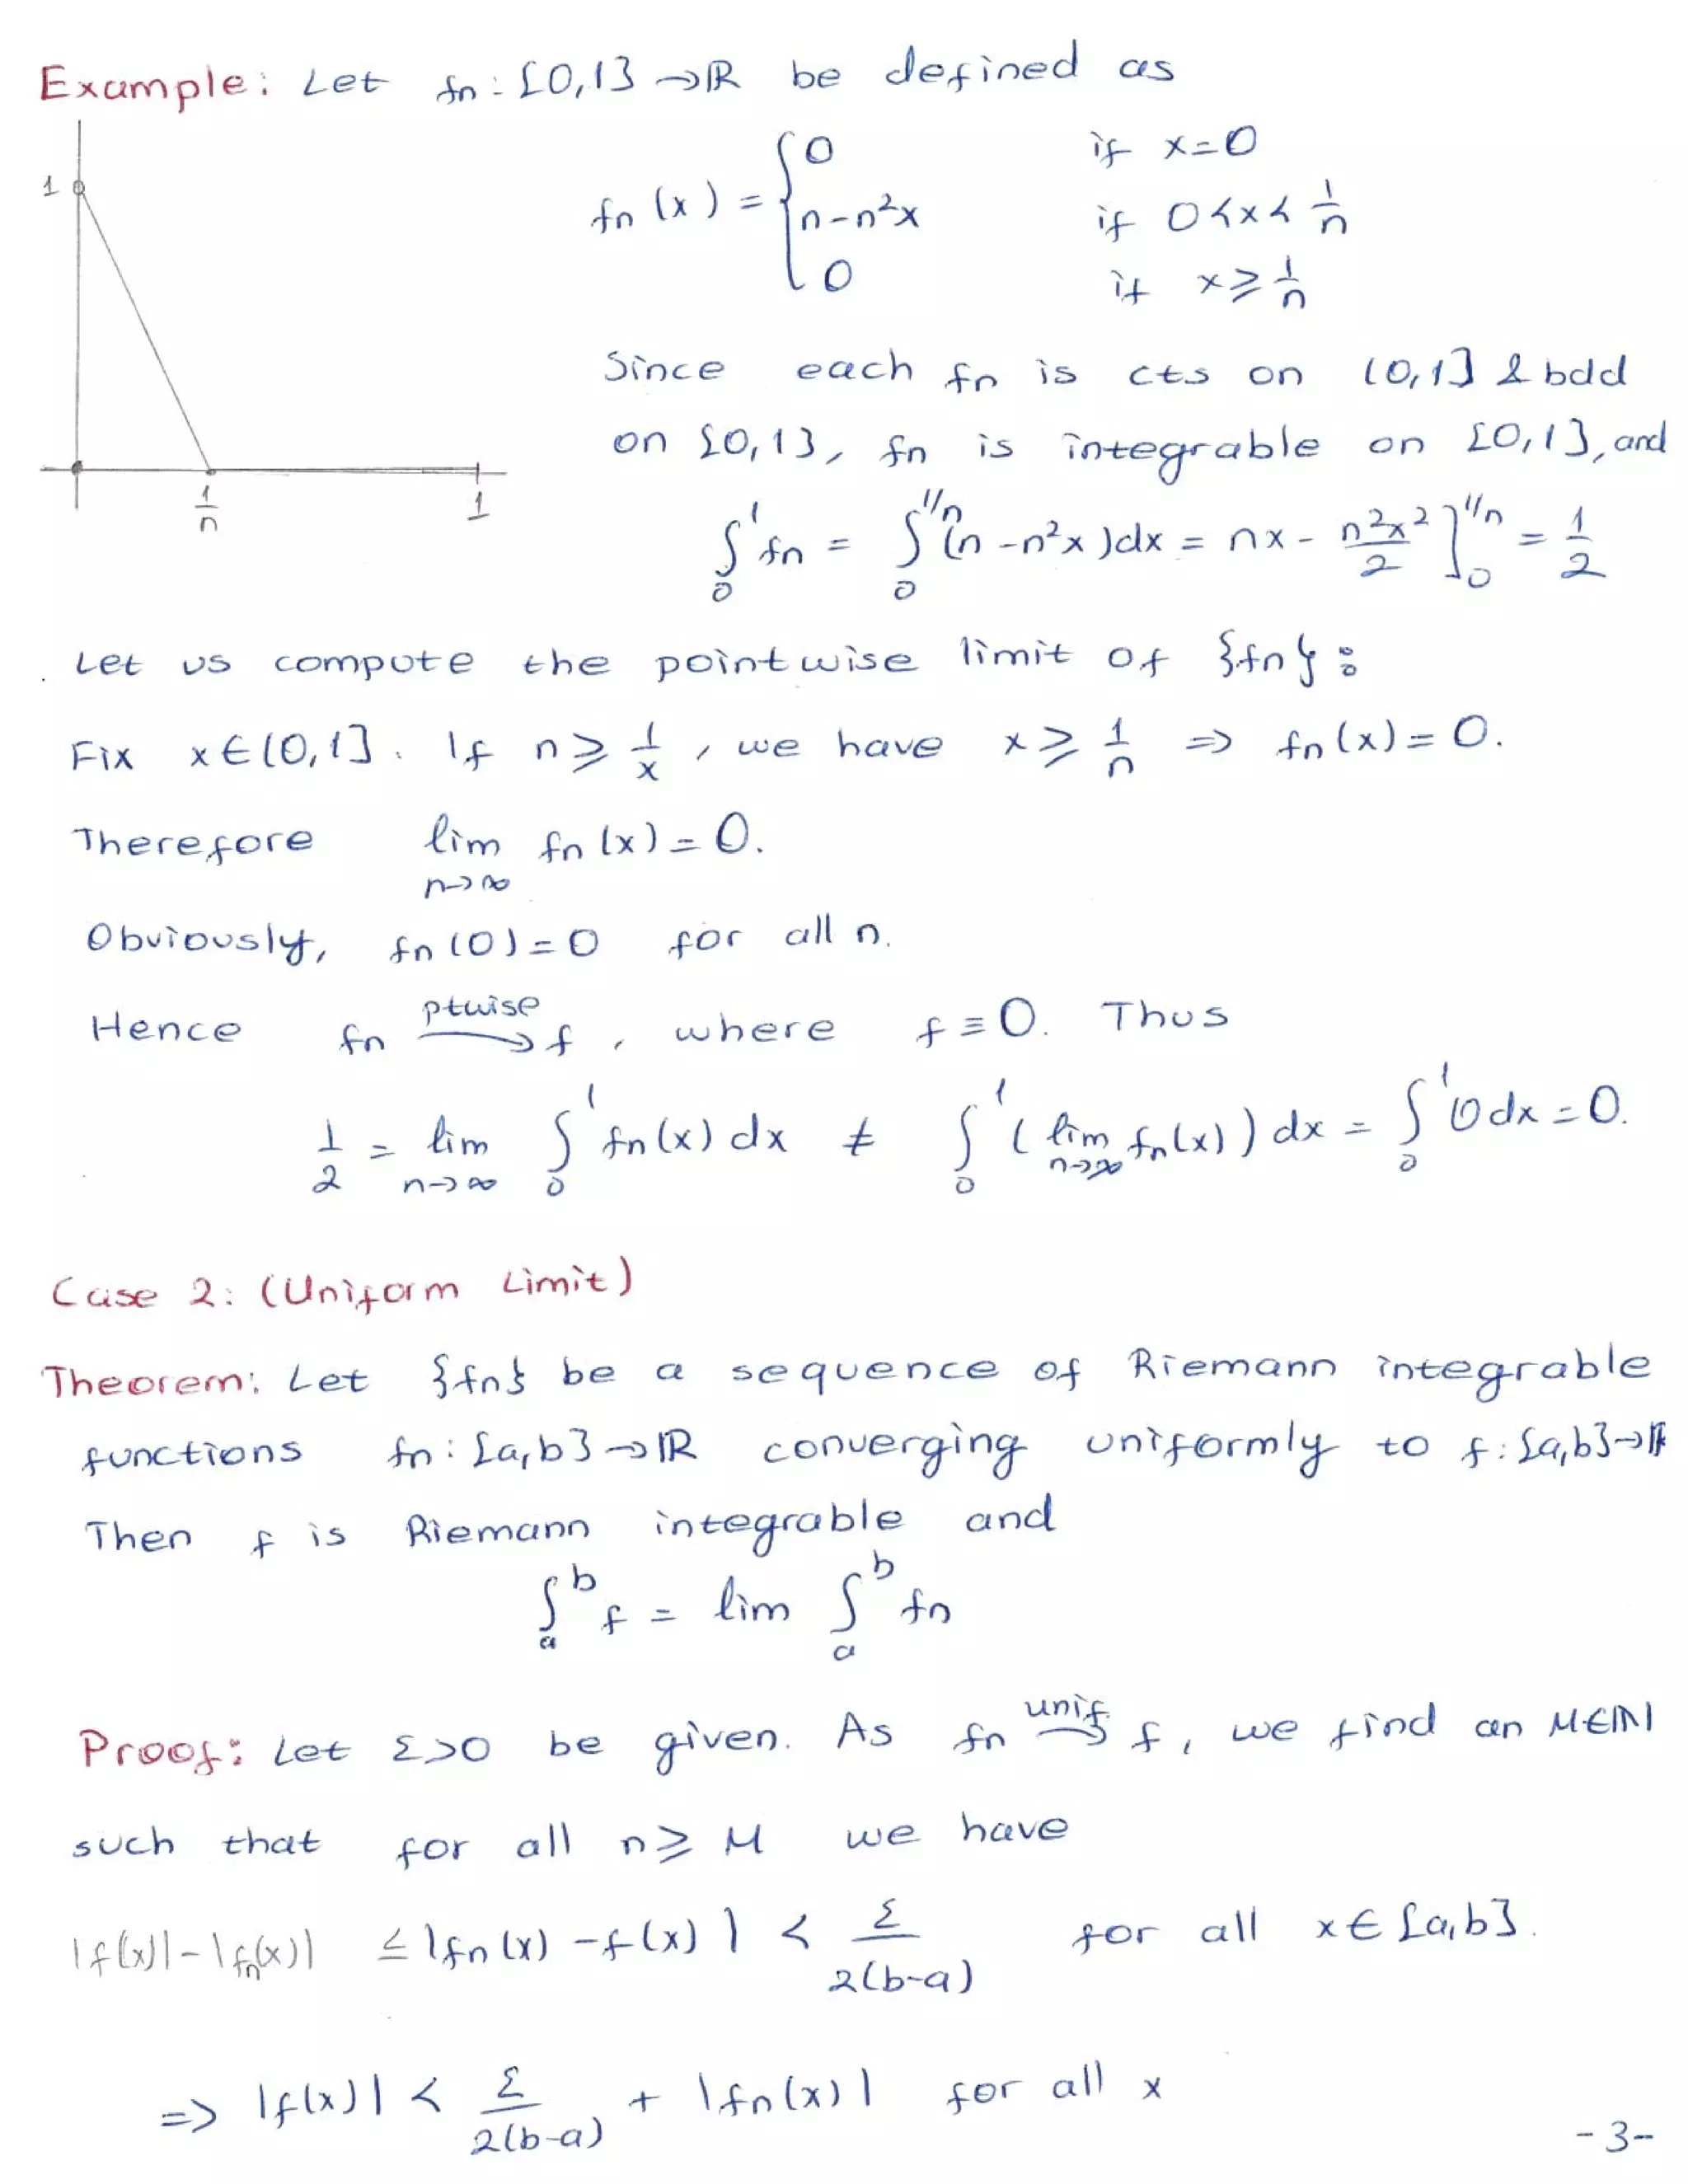 Example: Let fn: [0,1] → ℝ be defined as
fn(x) = { 0 if x=0
n-n²x if 0<x<1/n
0 if x≥1/n
1
1/n 1
Since each fn is cts on (0,1] & bdd
on [0,1], fn is integrable on [0,1], and
∫₀¹ fn = ∫₀^{1/n} (n-n²x)dx = nx - n²x²/2 ]₀^{1/n} = 1/2
Let us compute the pointwise limit of {fn}:
Fix x∈(0,1]. If n≥1/x, we have x≥1/n ⇒ fn(x)=0.
Therefore lim_{n→∞} fn(x)=0.
Obviously, fn(0)=0 for all n.
Hence fn —ptwise→ f, where f≡0. Thus
1/2 = lim_{n→∞} ∫₀¹ fn(x) dx ≠ ∫₀¹ (lim_{n→∞} fn(x)) dx = ∫₀¹ 0 dx = 0.
Case 2: (Uniform Limit)
Theorem: Let {fn} be a sequence of Riemann integrable
functions fn: [a,b] → ℝ converging uniformly to f: [a,b] → ℝ
Then f is Riemann integrable and
∫ₐᵇ f = lim ∫ₐᵇ fn
Proof: Let ε>0 be given. As fn —unif.→ f, we find an M∈ℕ
such that for all n≥M we have
|f(x)|-|fn(x)| ≤ |fn(x)-f(x)| < ε/2(b-a) for all x∈[a,b].
⇒ |f(x)| < ε/2(b-a) + |fn(x)| for all x
-3-